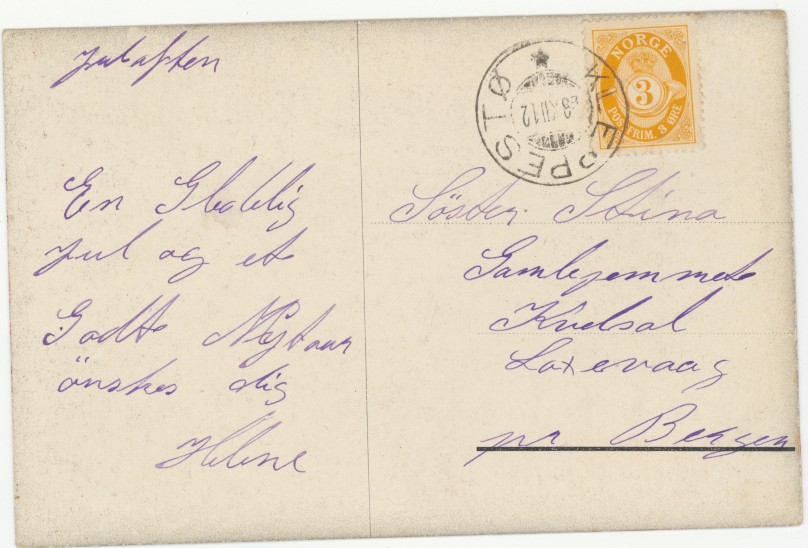 Julaften
En Gladelig
jul og et
Godt Nytaar
önskes dig
Helene
KLEPPESTØ
28 XII 12
NORGE
3
POSTFRIM. 3 ØRE
Söster Stina
Gamlejemmet
Laxevaag
pr Bergen